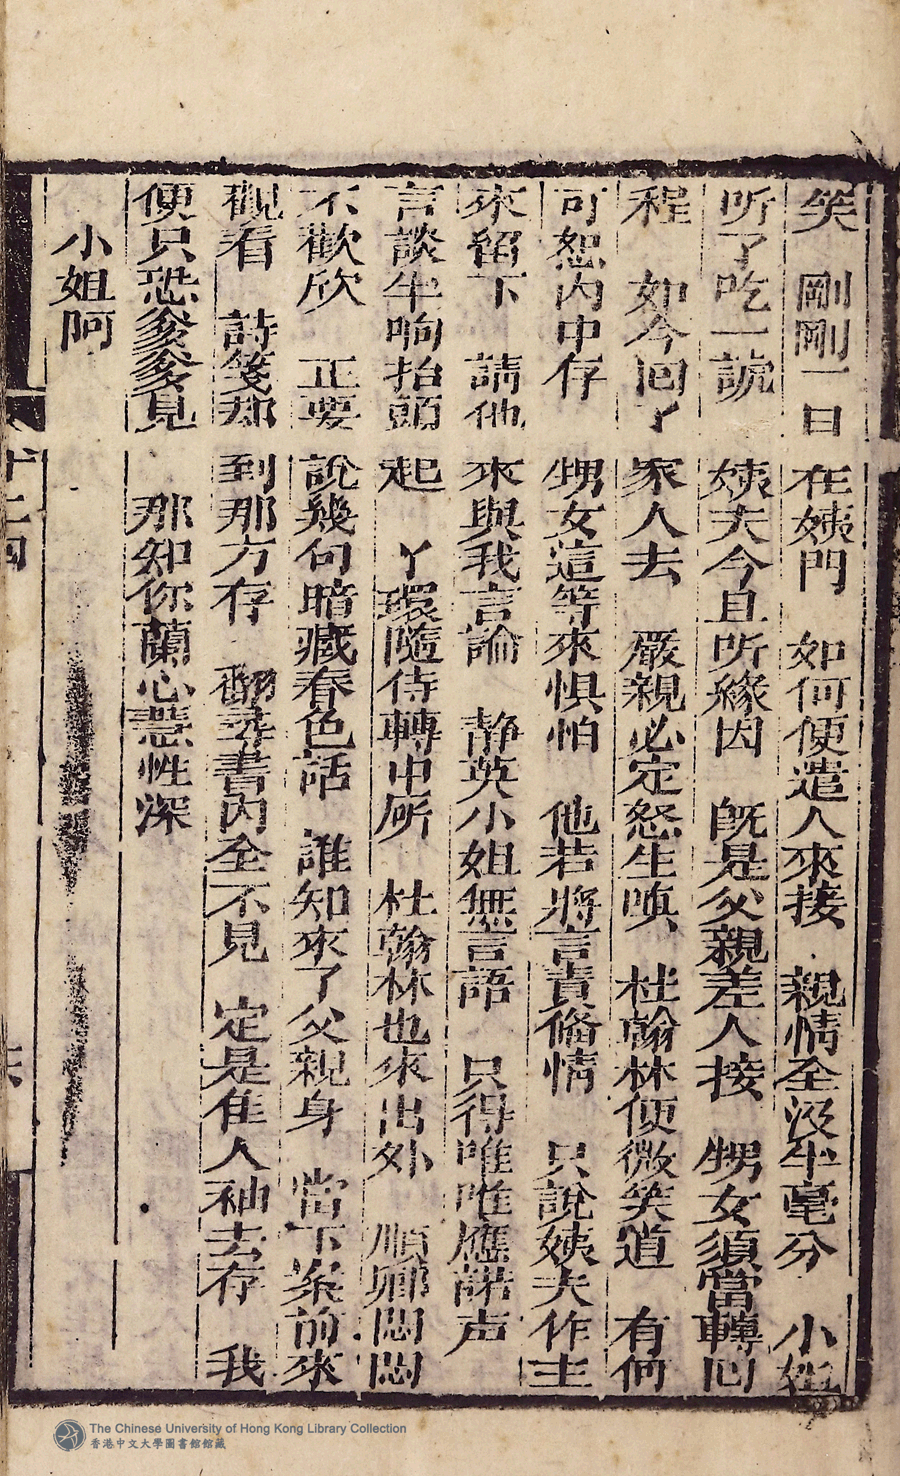 笑 剛剛一日在姨門 如何便遣人來接 親情全沒半毫分 小姐
听了吃一諕 姨夫今且听緣因 旣是父親差人接 甥女須當轉回
程 如今囘了家人去 嚴親必定怒生嗔 杜翰林便微笑道 有何
可恕内中存 甥女這等來惧怕 他若將言責備情 只說姨夫作主
來留下 請他來與我言論 静英小姐無言語 只得唯唯應諾声
言談半晌抬頭起 丫環隨侍轉中所 杜翰林也來出外 順卿悶悶
不歡欣 正要說幾句暗藏春色話 誰知來了父親身 當下案前來
觀看 詩箋却到那方存 翻盡書内全不見 定是佳人袖去存 我
便只恐爹爹見 那知你蘭心慧性深
小姐阿
十二四
The Chinese University of Hong Kong Library Collection
香港中文大學圖書館館藏